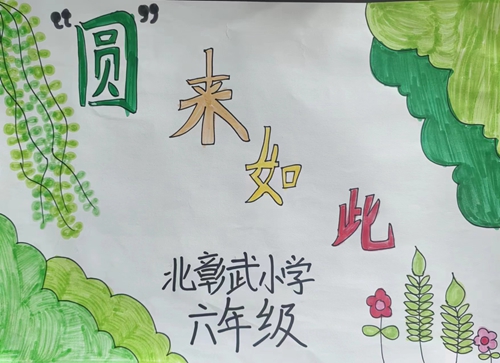 “圆”来如此
北彰武小学
六年级